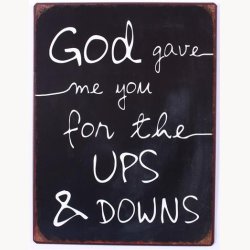 GOD gave
me you
for the
UPS
& DOWNS